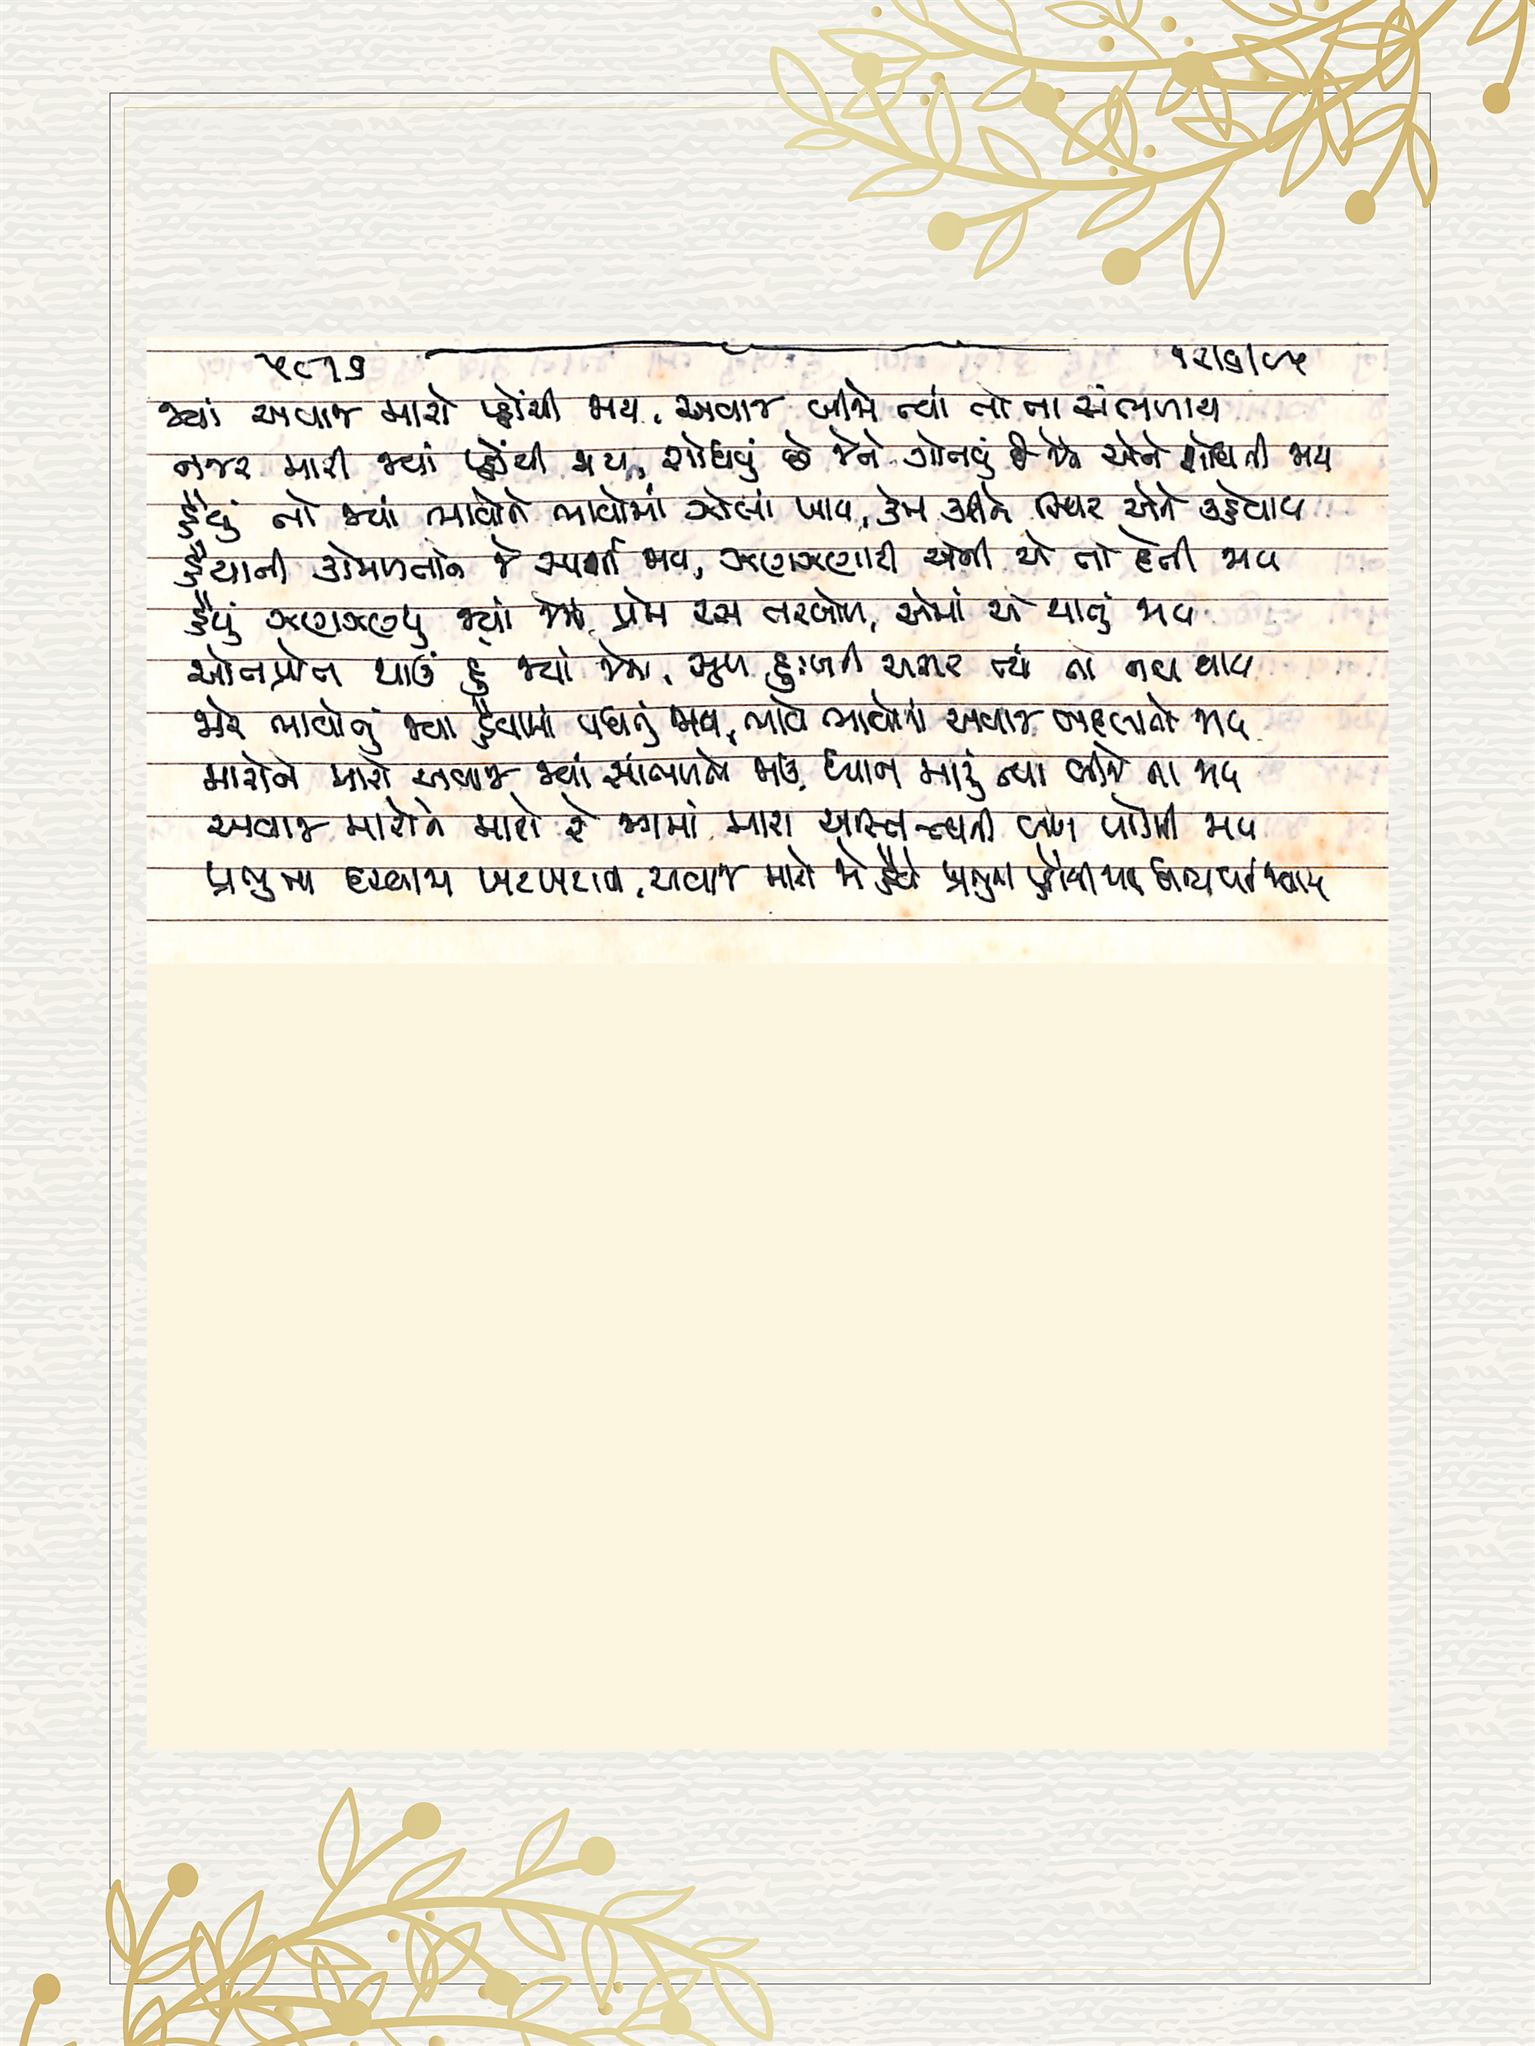 ૫૮૧૭ ૧૨/૬/૯૫
જ્યાં અવાજ મારો પ્હોંચી જાય, અવાજ બીજે ત્યાં તો ના સંભળાય
નજર મારી જ્યાં પ્હોંચી જાય, શોધવું છે જેને ગોતવું છે જેને એને શોધતી જાય
હૈયું તો જ્યાં ભાવોને ભાવોમાં ઝોલાં ખાય, કેમ કરીને સ્થિર એને કહેવાય
હૈયાની કોમળતાને જે સ્પર્શી જાય, ઝણઝણાટી એની એ તો દેતી જાય
હૈયું ઝણઝણ્યું જ્યાં જેમાં, પ્રેમ રસ તરબોળ, એમાં એ થાતું જાય
ઓતપ્રોત થાઉં હું જ્યાં જેમાં, સુખ દુઃખની અસર ત્યાં તો નવ થાય
જોર ભાવોનું જ્યાં હૈયામાં વધતું જાય, ભાવે ભાવોના અવાજ બદલાતો જાય
મારોને મારો અવાજ જ્યાં સાંભળતો જાઉં, ધ્યાન મારું ત્યાં બીજે ના જાય
અવાજ મારોને મારો રે જગમાં, મારા અસ્તિત્વની જાણ પાડતી જાય
પ્રભુના દરબારે ખટખટાવ, અવાજ મારો જો હૈયે પ્રભુના પ્હોંચી જાય ધન્ય